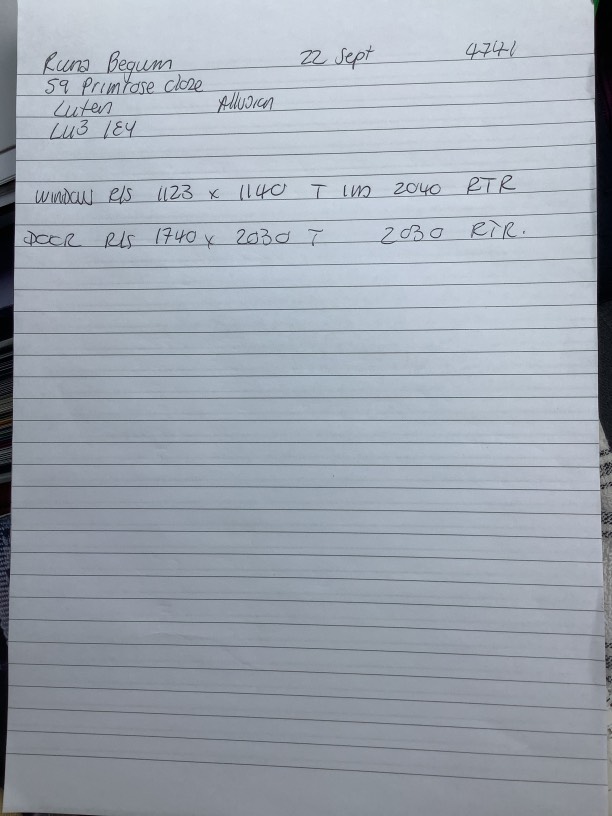 Runa Begum 22 Sept 4741
59 Primrose Close
Luton Allusion
LU3 1EY
WINDOW R/S 1123 x 1140 T 1M 2040 RTR
DOOR R/S 1740 x 2030 T 2030 RTR.